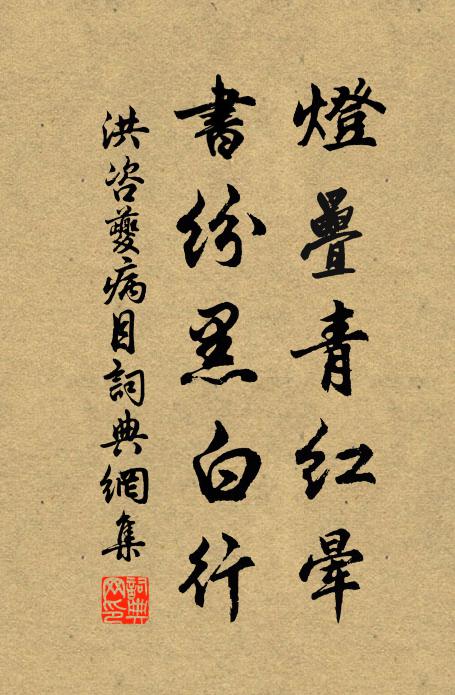 燈疊青紅暈
書紛黑白行
洪咨夔病目詞典網集
詞典网印